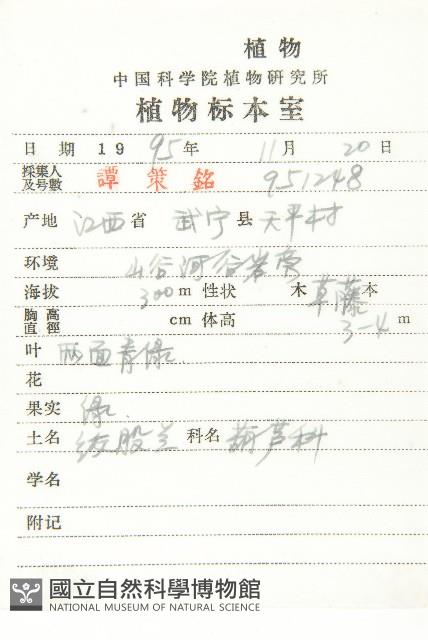 植物
中国科学院植物研究所
植物标本室
日期 1995年 11月 20日
採集人及号數 譚策銘 951248
产地 江西省 武宁县 天平村
环境 山谷河谷岩旁
海拔 300 m 性状 木 草藤 本
胸高直徑 cm 体高 3-4 m
叶 两面青绿.
花
果实 绿.
土名 绞股兰 科名 葫芦科
学名
附记
國立自然科學博物館
NATIONAL MUSEUM OF NATURAL SCIENCE